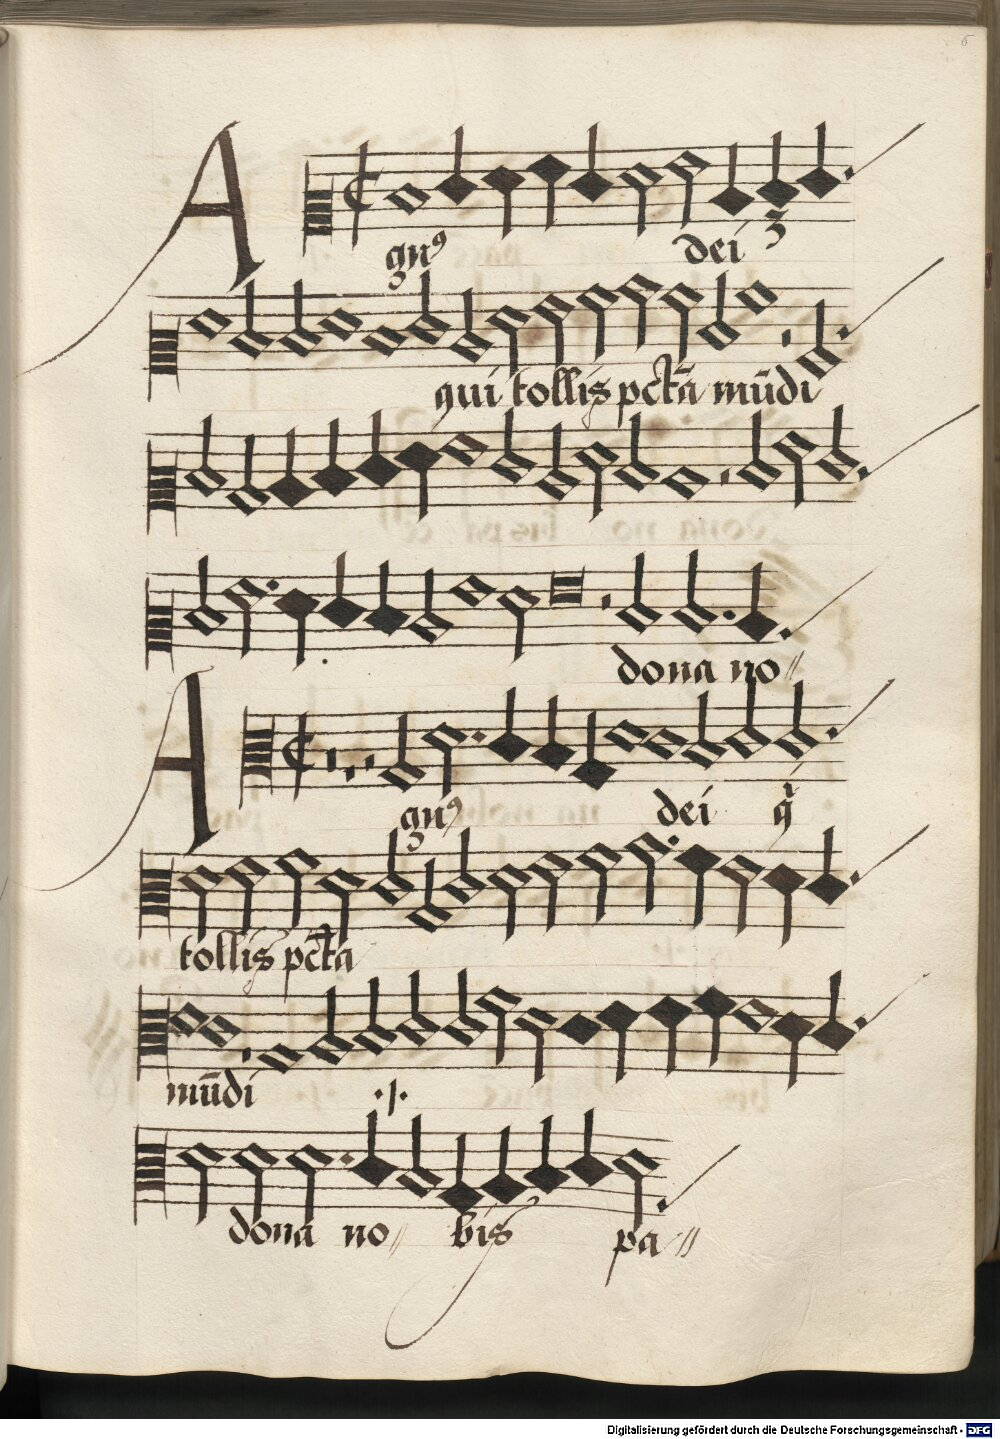 6
Agnꝰ dei
qui tollis pctā mūdi
dona no〃
Agnꝰ dei q̄
tollis pctā
mūdi ·/.
dona no〃 bis pa〃
Digitalisierung gefördert durch die Deutsche Forschungsgemeinschaft - DFG